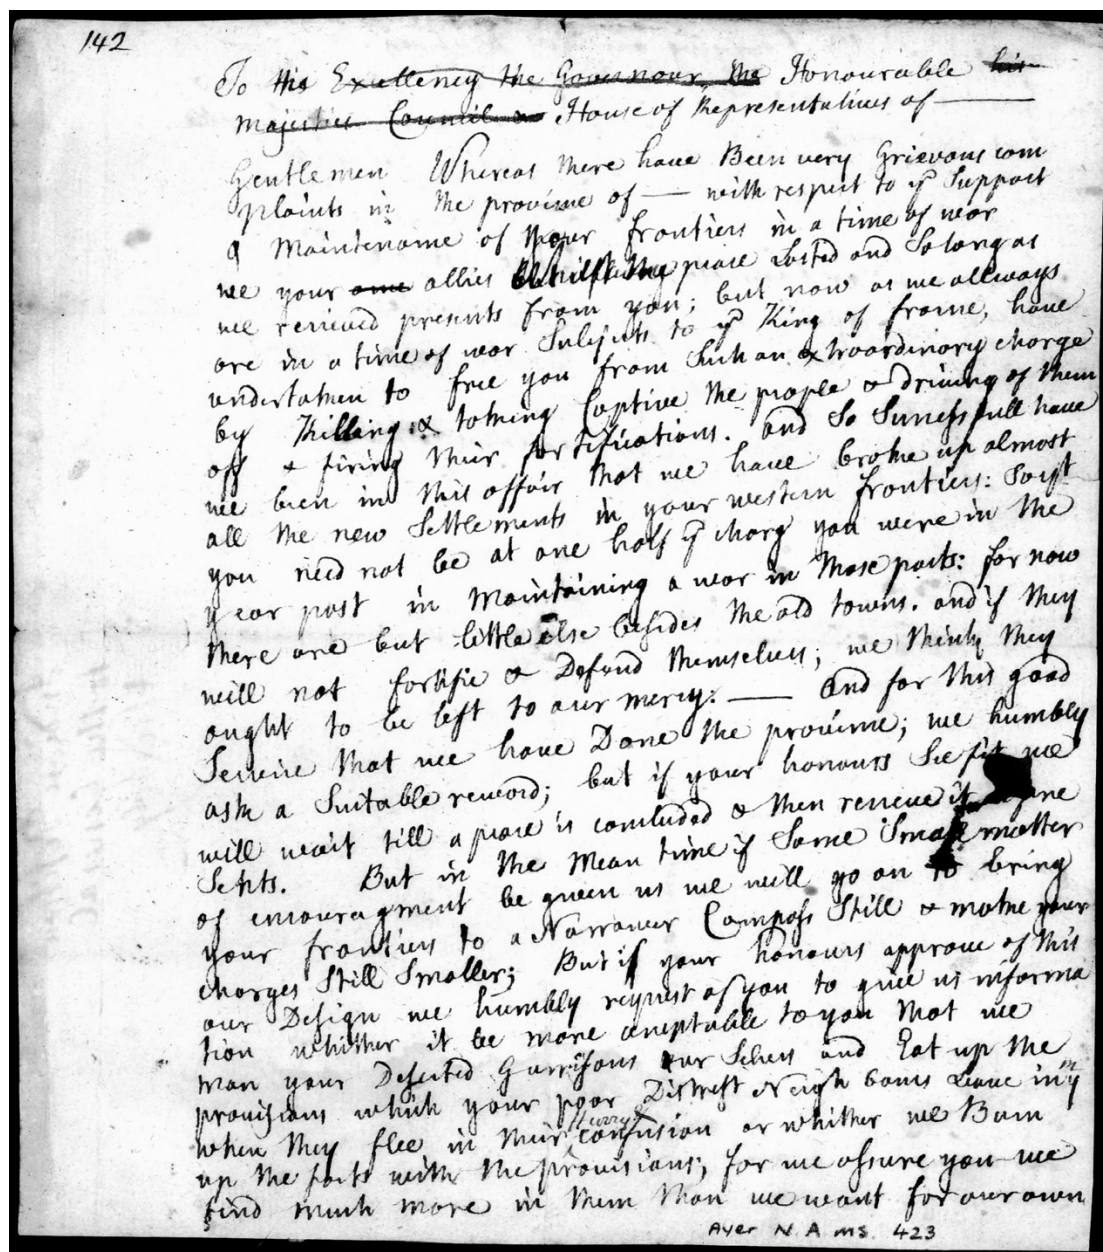 142
To His Excellency the Governour the Honourable his
Majesties Council & House of Representatives of ———
Gentlemen Whereas there have Been very Grievous com
plaints in the province of — with respect to ye Support
& Maintenance of your frontiers in a time of war
we your allies whilst the peace Lasted and So long as
we recieved presents from you; but now as we allways
are in a time of war Subjects to ye King of france, have
undertaken to free you from Such an extroordinory charge
by Killing & taking Captive the people & driving of them
off & firing their fortifications. and So Successfull have
we been in this affair that we have broke up almost
all the new Settlements in your western frontiers: So yt
you need not be at one half ye charg you were in the
year past in Maintaining a war in those parts: for now
there are but little Else besides the old towns. and if they
will not fortifie & Defend themselves; we think they
ought to be left to our mercy: —— And for this good
Service that we have Done the province; we humbly
ask a Suitable reword; but if your honours See fit we
will wait till a peace is concluded & then recieve it
Sekts. But in the Mean time if Some Small matter
of encouragment be given us we will go on to bring
your frontiers to a Narrower Compass Still & make your
charges Still Smaller; But if your honours approve of this
our Design we humbly request of you to give us informa
tion whither it be more acceptable to you that we
man your Deserted Garrisons our Selves and Eat up the
provisions which your poor Distrest Neighbours Leave in ym
when they flee in their Hurry & confusion or whither we Burn
up the forts with the provisions; for we assure you we
find much more in them than we want for our own
Ayer N. A ms. 423